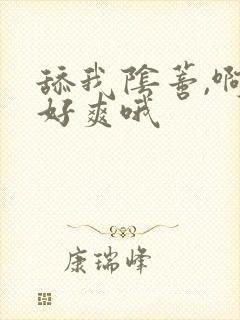 舔我陰蒂,啊
好爽哦
康瑞峰